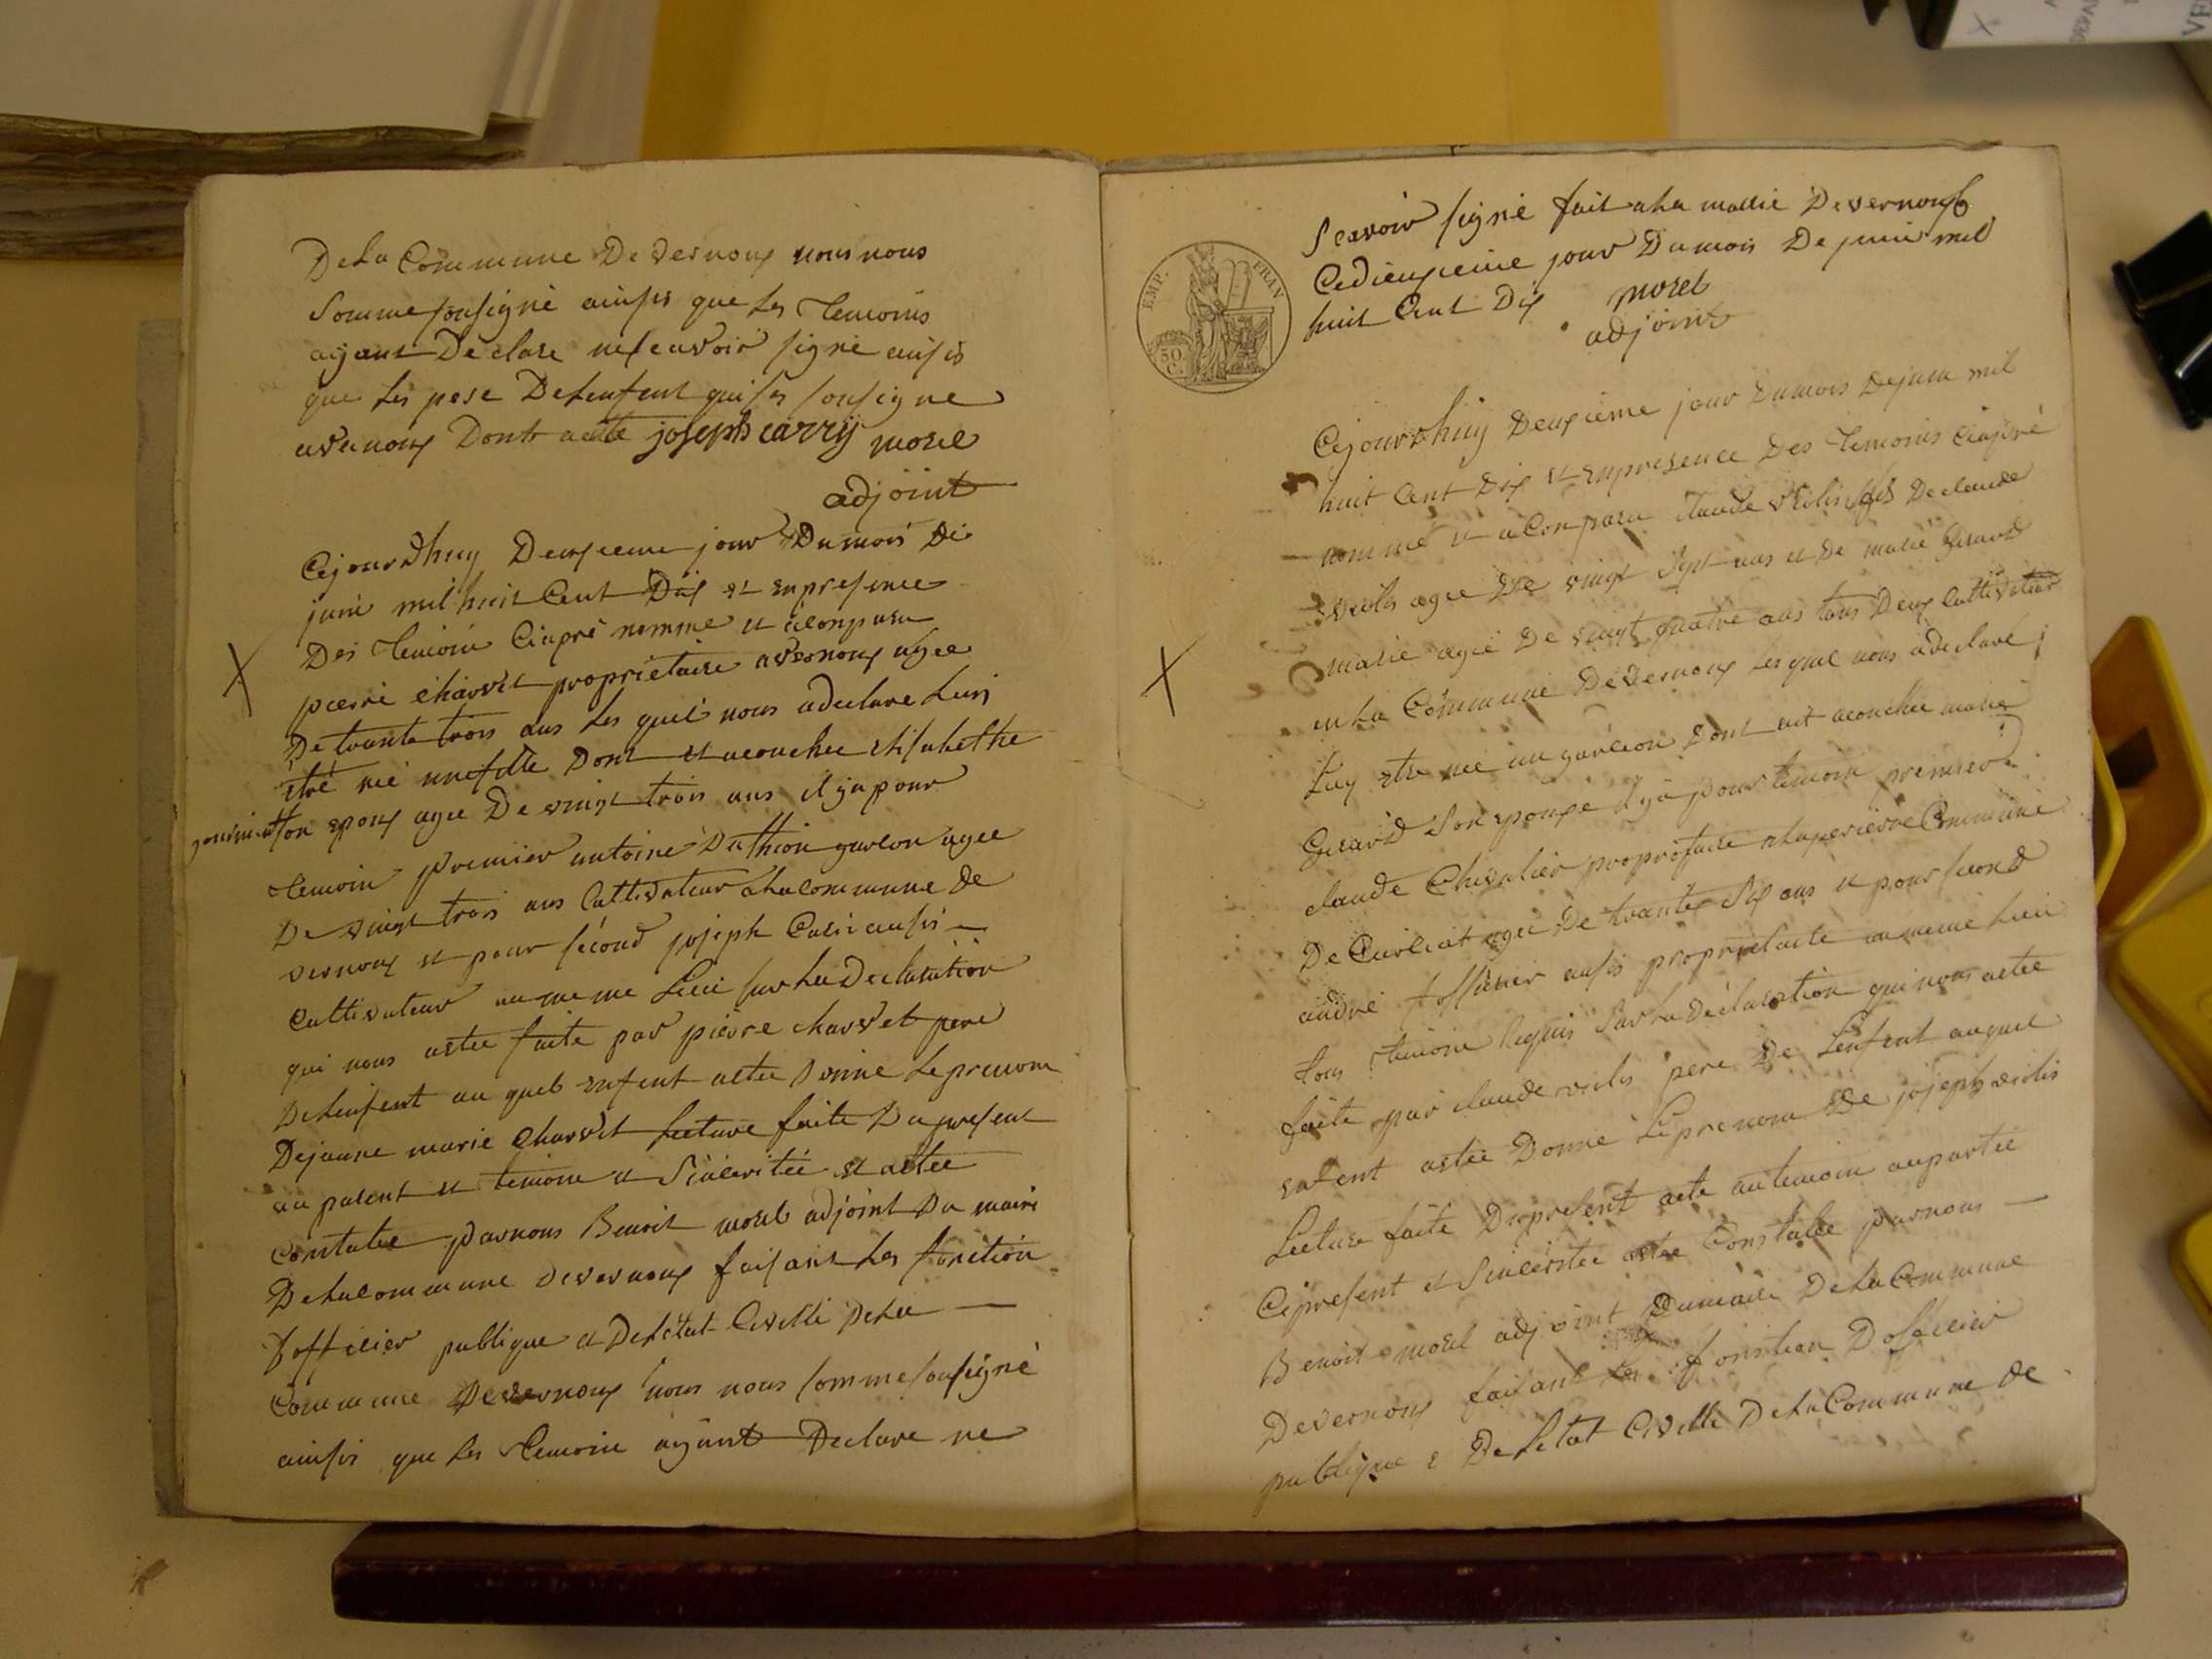 De La Commune De vernoux nous nous
Somme sousigné ainsis que Les Temoins
ayant De clare ne scavoir signé ainsis
que Les pere De Lenfent qui ses sousigne
avec nous Dont acte joseph carrÿ morel
adjoint
Cejourdhuy Deuxieme jour Du mois De
juin mil huit Cent Dix et en presence
Des Temoin Ciapré nomme et a conparu
pierre charvet propriétaire a vernoux agee
De trante trois ans Les quel nous a declare Luy
être né une fille Dont et acouchee Elisabethe
gourment son epoux agee De vingt trois ans il y a pour
Temoin premier antoine Duthion garson agee
De vingt trois ans Cultivateur a La commune De
vernoux et pour second joseph Cari ausis
Cultivateur au meme Lieu sur La Declaration
qui nous astee faite par pierre charvet pere
De Lenfent au quel enfent astee Donne Le prenom
De jeanne marie charvet Lecture faite Du present
au parent et temoin et Sinceritée et astee
Constatee par nous Benoit morel adjoint Du maire
De La commune De vernoux faisant Les fonction
D'officier publique et De Létat Civille De La
Commune De vernoux nous nous somme sousigné
ainsis que Les Temoin ayant Declare ne
EMP. FRAN
50 C.
Scavoir signé fait a La mairie De vernoux
Ce dieuxieme jour Du mois De juin mil
huit Cent Dix morel
adjoint
Cejourdhuy Deuxieme jour Du mois De juin mil
huit Cent Dix et en presence Des Temoins Ciapré
nommé et a Conparu Claude violis fils De claude
violis agee De vingt Sept ans et De marie Gerard
marie agee De vingt quatre ans tous Deux Cultivateur
en La Commune De vernoux Les quel nous a declaré
Luy etre né un garcon Dont ait acouchee marie
Gerard Son epouse il y a pour temoin premier
claude Chevalier propriétaire a La perierre Commune
De Curciat agee De trante Six ans et pour second
andré ausis propriétaire au meme Lieu
tous Temoin Requis Sur La Declaration qui nous astee
faite par claude violis pere De Lenfent auquel
enfent astee Donné Le prenom De joseph violis
Lecture faite Du present acte au temoin au partie
Ci present et Sincéritée astee Constatee par nous
Benoit morel adjoint Du maire De La Commune
De vernoux faisant Les fonction D officier
publique & De Letat Civille De La Commune De